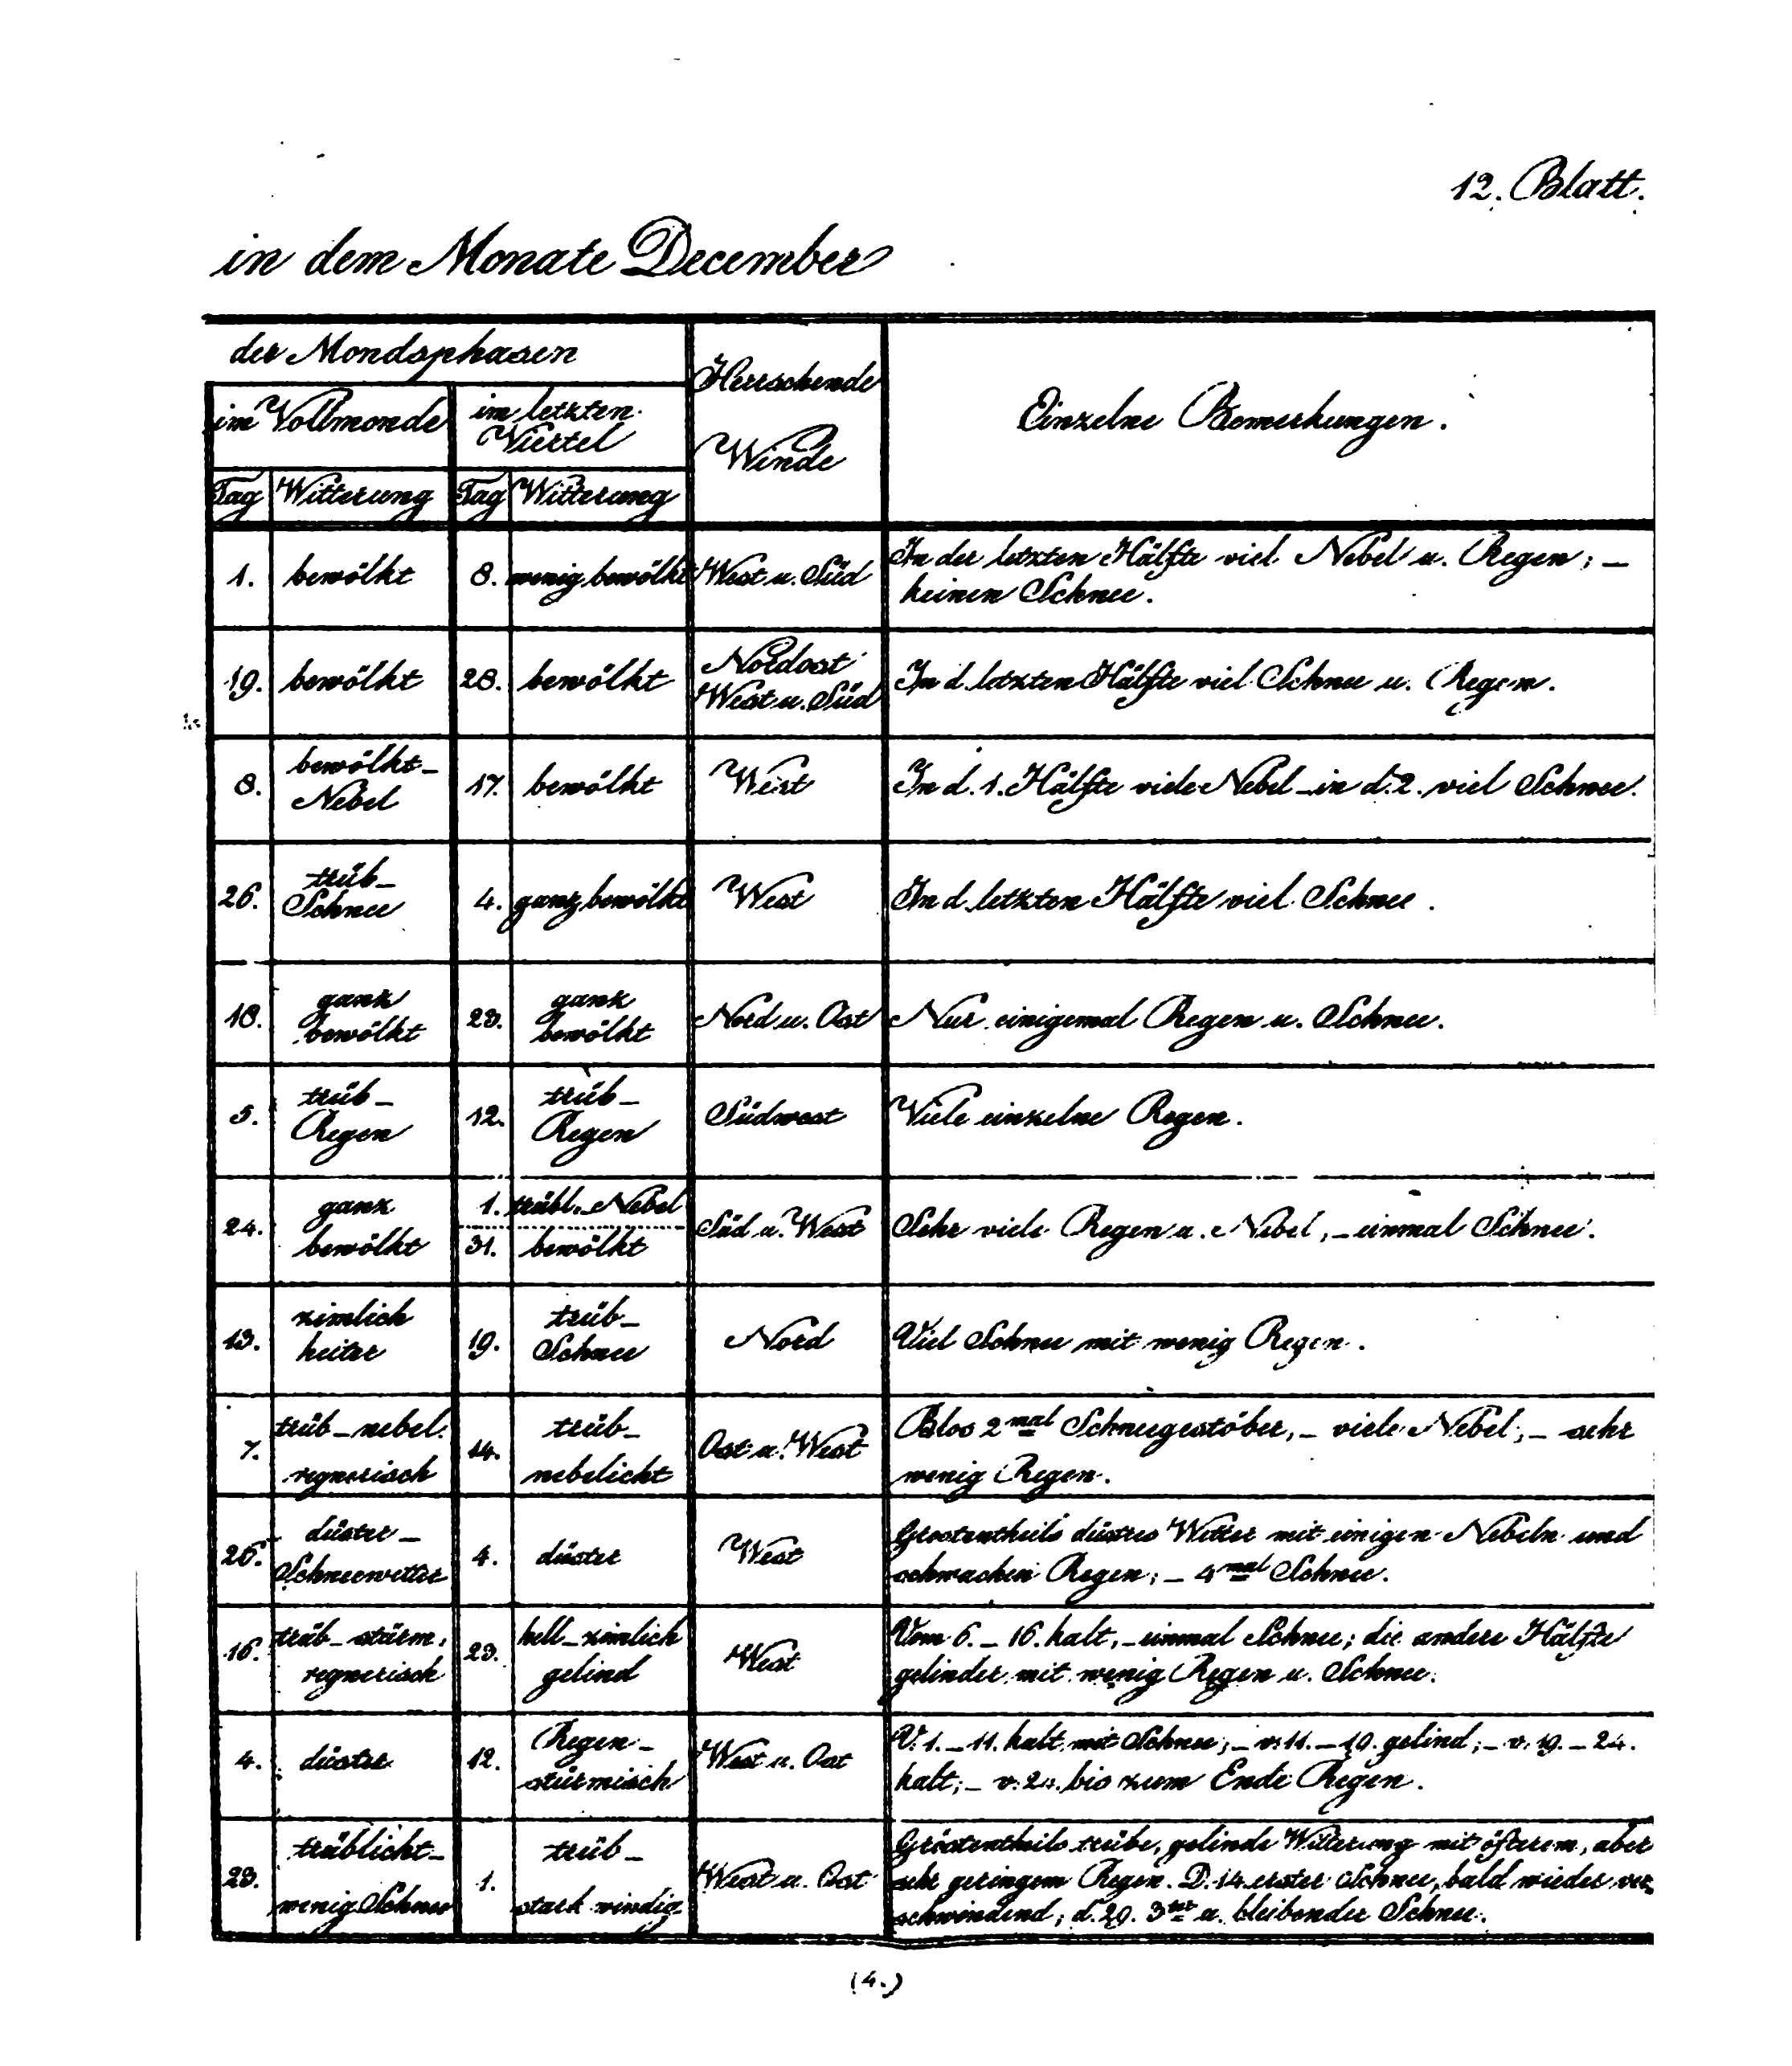 12. Blatt.
in dem Monate December
der Mondsphasen
Herrschende
Winde
Einzelne Bemerkungen.
im Vollmonde
im letzten
Viertel
Tag Witterung Tag Witterung
1. bewölkt 8. wenig bewölkt West u. Süd In der letzten Hälfte viel Nebel u. Regen; –
keinen Schnee.
19. bewölkt 28. bewölkt Nordost
West u. Süd In d. letzten Hälfte viel Schnee u. Regen.
8. bewölkt –
Nebel 17. bewölkt West In d. 1. Hälfte viele Nebel – in d. 2. viel Schnee.
26. trüb –
Schnee 4. ganz bewölkt West In d. letzten Hälfte viel Schnee.
18. ganz
bewölkt 23. ganz
bewölkt Nord u. Ost Nur einigemal Regen u. Schnee.
5. trüb –
Regen 12. trüb –
Regen Südwest Viele einzelne Regen.
24. ganz
bewölkt 1. trübl. – Nebel
31. bewölkt Süd u. West Sehr viele Regen u. Nebel, – einmal Schnee.
13. zimlich
heiter 19. trüb –
Schnee Nord Viel Schnee mit wenig Regen.
7. trüb – nebel.
regnerisch 14. trüb –
nebelicht Ost u. West Blos 2mal Schneegestöber, – viele Nebel, – sehr
wenig Regen.
26. düster –
Schneewetter 4. düster West Grostentheils düstres Wetter mit einigen Nebeln und
schwachen Regen; – 4mal Schnee.
16. trüb – stürm.
regnerisch 23. hell – zimlich
gelind West Vom 6. – 16. kalt, – einmal Schnee; die andere Hälfte
gelinder mit wenig Regen u. Schnee.
4. düster 12. Regen –
stürmisch West u. Ost V. 1. – 11. kalt mit Schnee; – v. 11. – 19. gelind; – v. 19. – 24.
kalt; – v. 24. bis zum Ende Regen.
23. trüblicht –
wenig Schnee 1. trüb –
stark windig West u. Ost Gröstentheils trübe, gelinde Witterung mit öfterem, aber
sehr geringem Regen. D. 14. erster Schnee, bald wieder ver-
schwindend; d. 29. 3ter u. bleibender Schnee.
(4.)